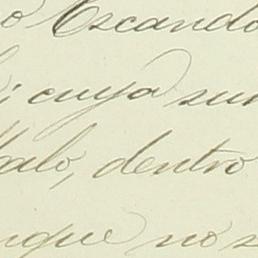 o Escando
; cuya sum
balo, dentro
nque no s